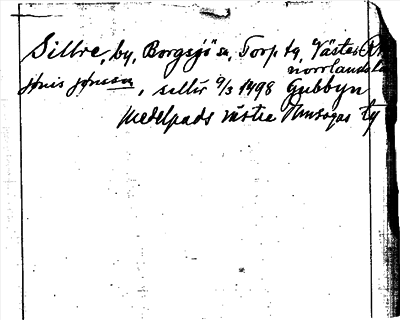 Sillre, by, Borgsjö sn, Torp tg, Väster-
norrlands
Jönis Jönsson, säljer 9/3 1498 Gubbyn
Medelpads västra tg